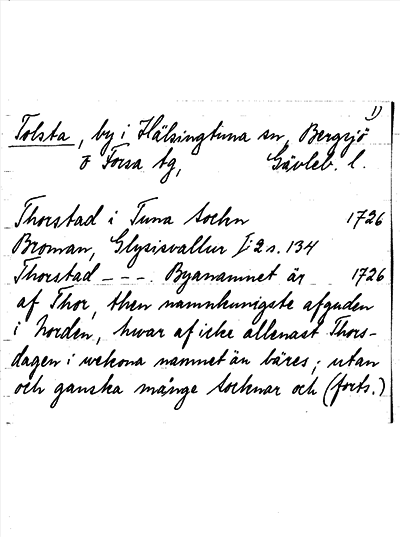 1)
Tolsta, by i Hälsingtuna sn, Bergsjö
o Forsa tg, Gävleb. l.
Thorstad i Tuna sochn 1726
Broman, Glysisvallur I: 2 s. 134
Thorstad - - -. Byanamnet är 1726
af Thor, then namnkunnigste afguden
i Norden, hwar af icke allenast Thors-
dagen i wekona namnet än bäres; utan
och ganska månge socknar och (forts.)